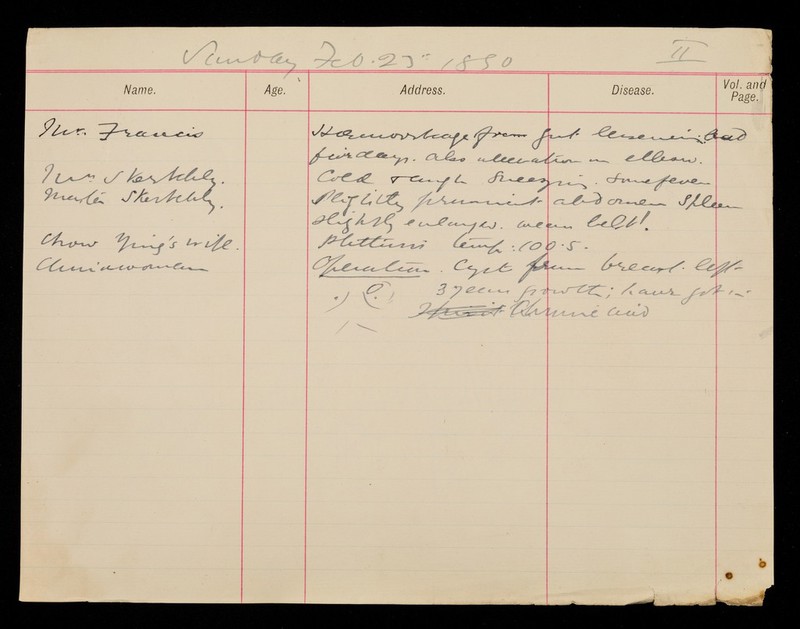 Sunday Feb. 23rd 1890
II
Name. Age. Address. Disease. Vol. and Page.
Mr. Francis Haemorrhage from gut lessening. bad
four days. also ulceration on elbow.
Mrs Skertchly. Cold & cough Sneezing. some fever
Master Skertchly. Slightly prominent abdomen Spleen
slightly enlarged. wears belt!.
Chow Ying's wife. temp: 100.5.
Chinawoman Operation. Cyst from breast. left
3 years growth; have got in
Chromic acid